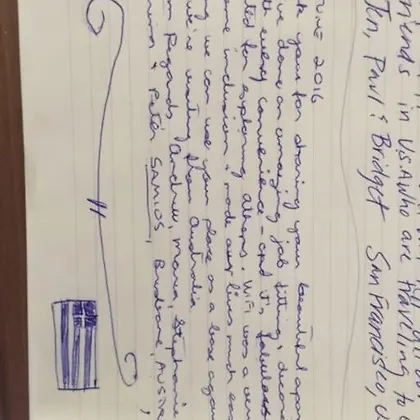 friends in U.S.A who are traveling to
Jen, Paul & Bridget San Francisco,
June 2016
you for sharing your beautiful
done an amazing job fitting,
every convenience - and it's fabulous
for exploring Athens. WiFi was a
inclusion & made our lives much
we can use your place as a base again
we're visiting from Australia
Regards, Andrew, Maria, Stephanie
& Peter SAMIOS, Brisbane,